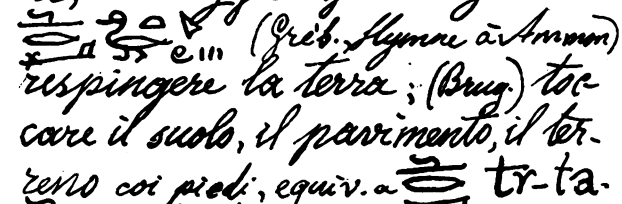 (Gréb. Hymne à Ammon)
respingere la terra; (Brug.) toc-
care il suolo, il pavimento, il ter-
reno coi piedi, equiv. a tr-ta.